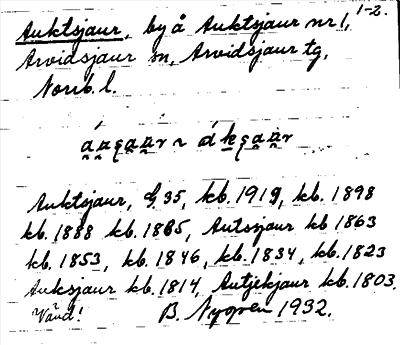 Auktsjaur, by å Auktsjaur nr 1, 1-2.
Arvidsjaur sn, Arvidsjaur tg,
Norrb. l.
Auktsjaur, G 35, kb. 1919, kb. 1898
kb. 1888 kb. 1865, Autsjaur kb 1863
kb. 1853, kb. 1846, kb. 1834, kb. 1823
Auksjaur kb. 1814, Autjekjaur kb. 1803.
Vänd! B. Nygren 1932.